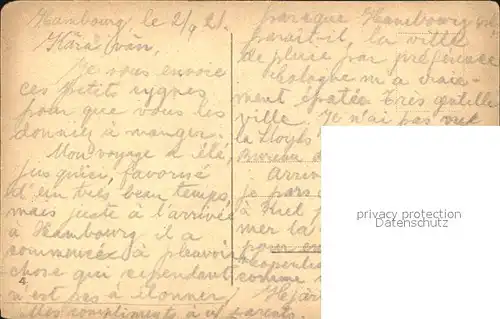 Hambourg le 2/9 21.
Kära vän,
Je vous envoie
ces petits cygnes
pour que vous les
donniez à manger.
Mon voyage a été,
jusqu'ici, favorisé
d'un très beau temps,
mais juste à l'arrivée
à Hambourg il a
commencé à pleuvoir
chose qui cependant
n'est pas à étonner,
Mes compliments à vos parents.
parsque Hambourg est
parait-il, la ville
de pluie par préférence
Cologne m'a vraie-
ment épatée. Très gentille
ville. Je n'ai pas vu
la Lloyds
Bureau
Arriv
je pars
à Kiel
mer la
pour
Copenh
comme
Hjär
4
privacy protection
AnsichtskartenVersand.com